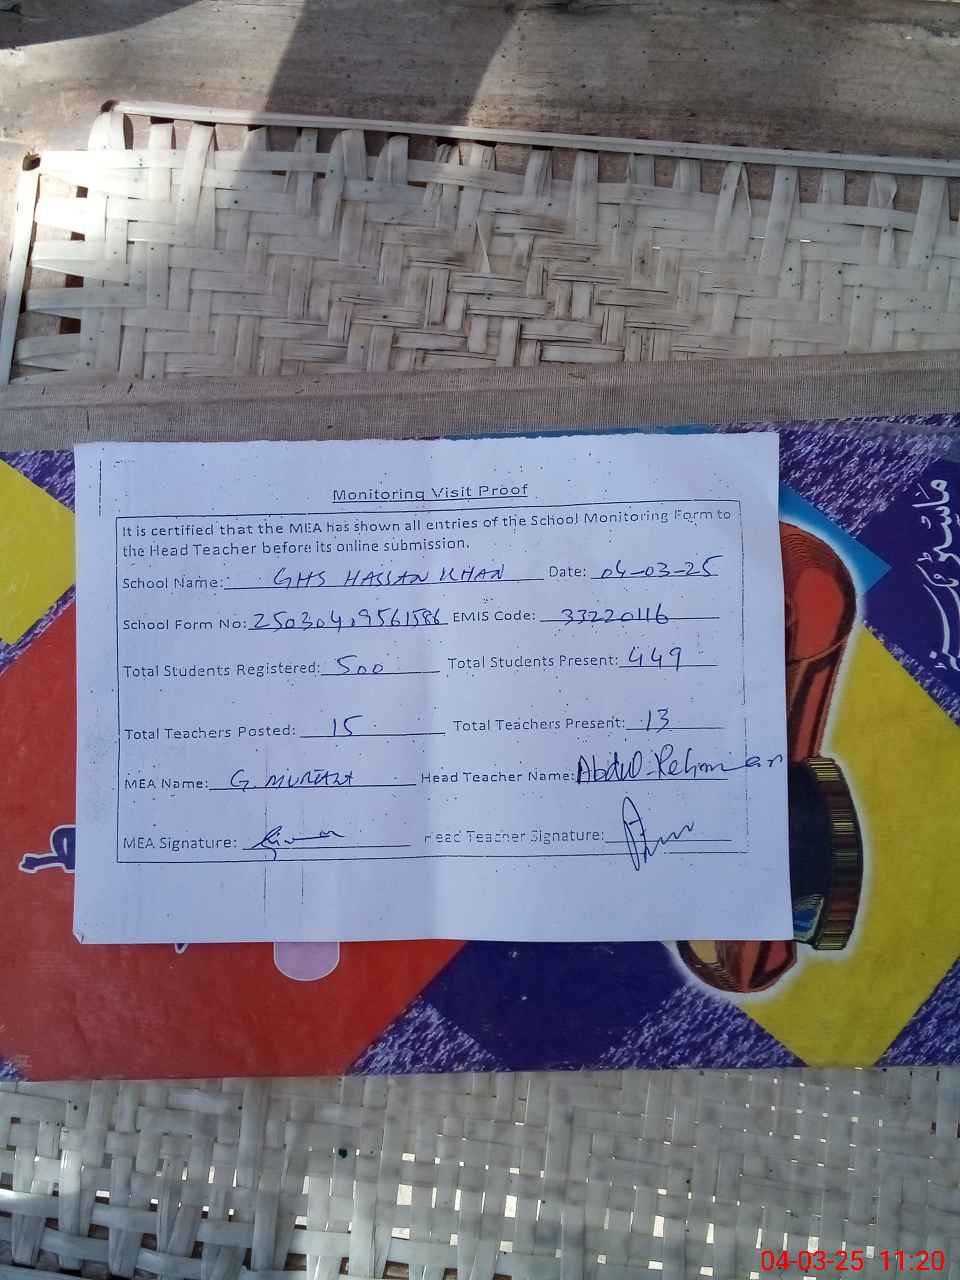 Monitoring Visit Proof
It is certified that the MEA has shown all entries of the School Monitoring Form to
the Head Teacher before its online submission.
School Name: GHS HASSAN KHAN Date: 04-03-25
School Form No: 250304,9561586 EMIS Code: 33220116
Total Students Registered: 500 Total Students Present: 449
Total Teachers Posted: 15 Total Teachers Present: 13
MEA Name: G. MURTAZA Head Teacher Name: Abdul Rehman
MEA Signature: Head Teacher Signature:
04-03-25 11:20